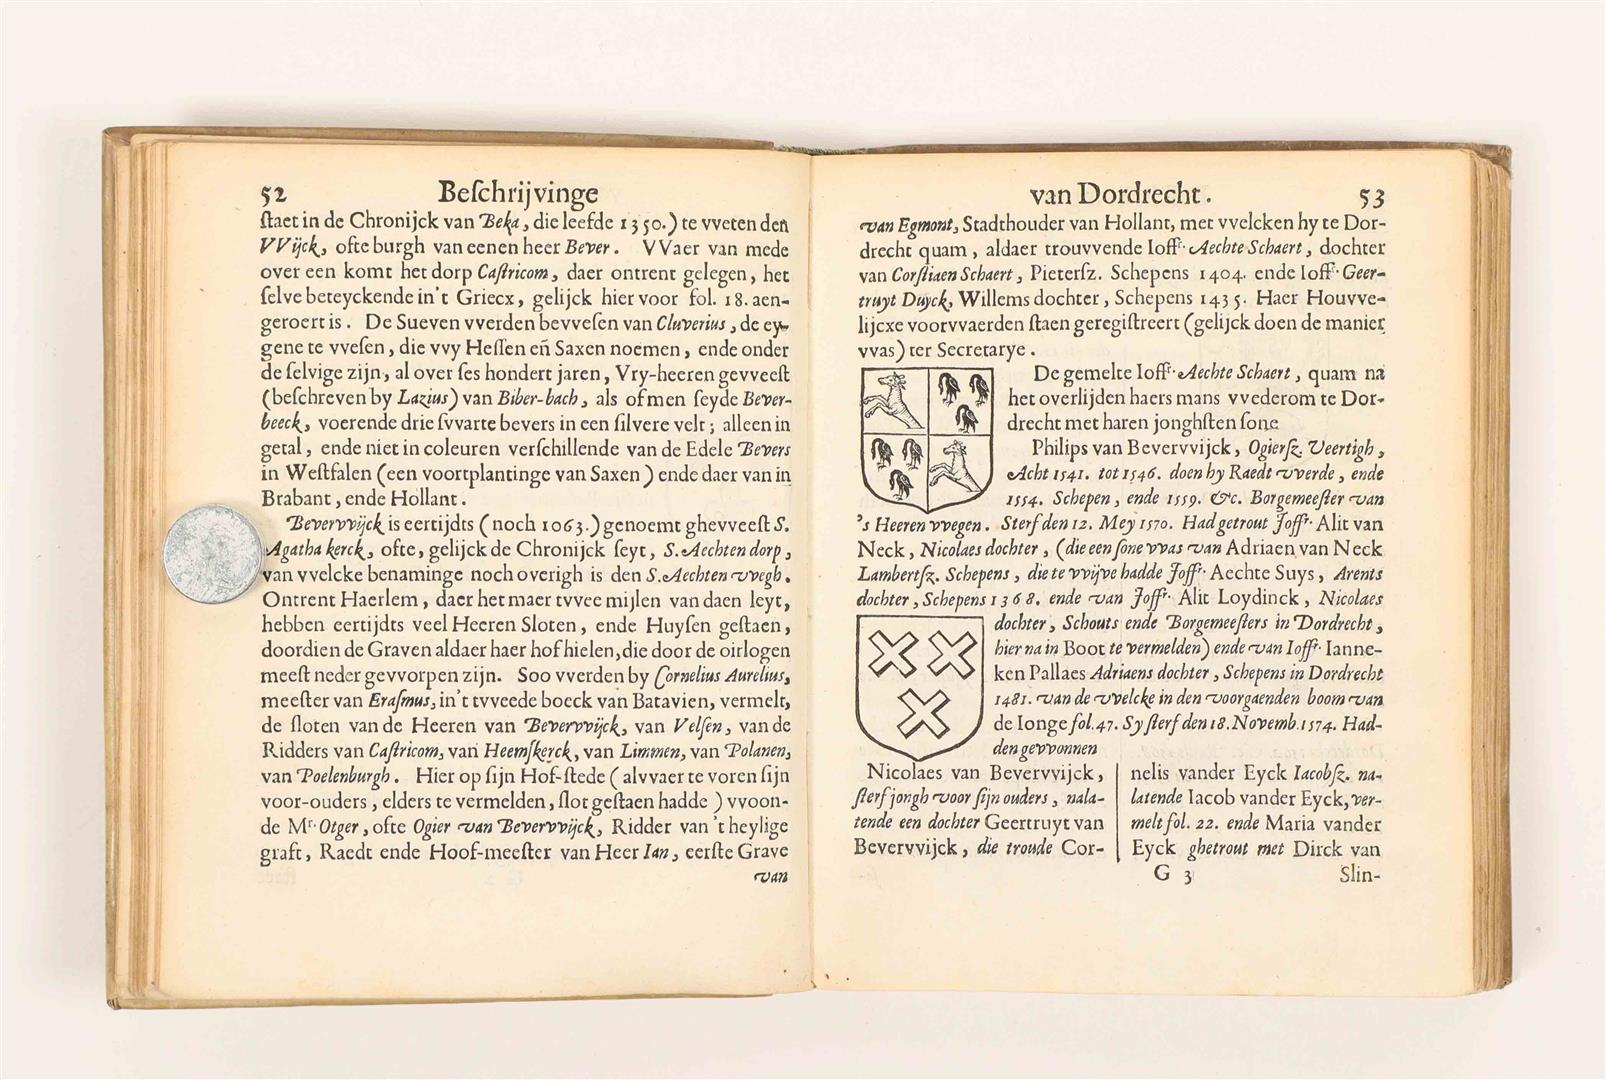 52 Beſchrijvinge
ſtaet in de Chronijck van Beka, die leefde 1350.) te vveten den
VVijck, ofte burgh van eenen heer Bever. VVaer van mede
over een komt het dorp Caſtricom, daer ontrent gelegen, het
ſelve beteyckende in't Griecx, gelijck hier voor fol. 18. aen-
geroert is. De Sueven vverden bevveſen van Cluverius, de ey-
gene te vveſen, die vvy Heſſen eñ Saxen noemen, ende onder
de ſelvige zijn, al over ſes hondert jaren, Vry-heeren gevveeſt
(beſchreven by Lazius) van Biber-bach, als ofmen ſeyde Bever-
beeck, voerende drie ſvvarte bevers in een ſilvere velt; alleen in
getal, ende niet in coleuren verſchillende van de Edele Bevers
in Weſtfalen (een voortplantinge van Saxen) ende daer van in
Brabant, ende Hollant.
Bevervvijck is eertijdts (noch 1063.) genoemt ghevveeſt S.
Agatha kerck, ofte, gelijck de Chronijck ſeyt, S. Aechten dorp,
van vvelcke benaminge noch overigh is den S. Aechten vvegh.
Ontrent Haerlem, daer het maer tvvee mijlen van daen leyt,
hebben eertijdts veel Heeren Sloten, ende Huyſen geſtaen,
doordien de Graven aldaer haer hof hielen, die door de oirlogen
meeſt neder gevvorpen zijn. Soo vverden by Cornelius Aurelius,
meeſter van Eraſmus, in't tvveede boeck van Batavien, vermelt,
de ſloten van de Heeren van Bevervvijck, van Velſen, van de
Ridders van Caſtricom, van Heemſkerck, van Limmen, van Polanen,
van Poelenburgh. Hier op ſijn Hof-ſtede (alvvaer te voren ſijn
voor-ouders, elders te vermelden, ſlot geſtaen hadde) vvoon-
de Mr. Otger, ofte Ogier van Bevervvijck, Ridder van 't heylige
graft, Raedt ende Hoof-meeſter van Heer Ian, eerſte Grave
van
van Dordrecht. 53
van Egmont, Stadthouder van Hollant, met vvelcken hy te Dor-
drecht quam, aldaer trouvvende Ioffr. Aechte Schaert, dochter
van Corſtiaen Schaert, Pieterſz. Schepens 1404. ende Ioffr. Geer-
truyt Duyck, Willems dochter, Schepens 1435. Haer Houvve-
lijcxe voorvvaerden ſtaen geregiſtreert (gelijck doen de manier
vvas) ter Secretarye.
De gemelte Ioffr. Aechte Schaert, quam na
het overlijden haers mans vvederom te Dor-
drecht met haren jonghſten ſone
Philips van Bevervvijck, Ogierſz. Veertigh,
Acht 1541. tot 1546. doen hy Raedt vverde, ende
1554. Schepen, ende 1559. &c. Borgemeeſter van
's Heeren vvegen. Sterf den 12. Mey 1570. Had getrout Joffr. Alit van
Neck, Nicolaes dochter, (die een ſone vvas van Adriaen van Neck
Lambertſz. Schepens, die te vvijve hadde Joffr. Aechte Suys, Arents
dochter, Schepens 1368. ende van Joffr. Alit Loydinck, Nicolaes
dochter, Schouts ende Borgemeeſters in Dordrecht,
hier na in Boot te vermelden) ende van Ioffr. Ianne-
ken Pallaes Adriaens dochter, Schepens in Dordrecht
1481. van de vvelcke in den voorgaenden boom van
de Ionge fol. 47. Sy ſterf den 18. Novemb. 1574. Had-
den gevvonnen
Nicolaes van Bevervvijck,
ſterf jongh voor ſijn ouders, nala-
tende een dochter Geertruyt van
Bevervvijck, die troude Cor-
nelis vander Eyck Iacobſz. na-
latende Iacob vander Eyck, ver-
melt fol. 22. ende Maria vander
Eyck ghetrout met Dirck van
G 3 Slin-